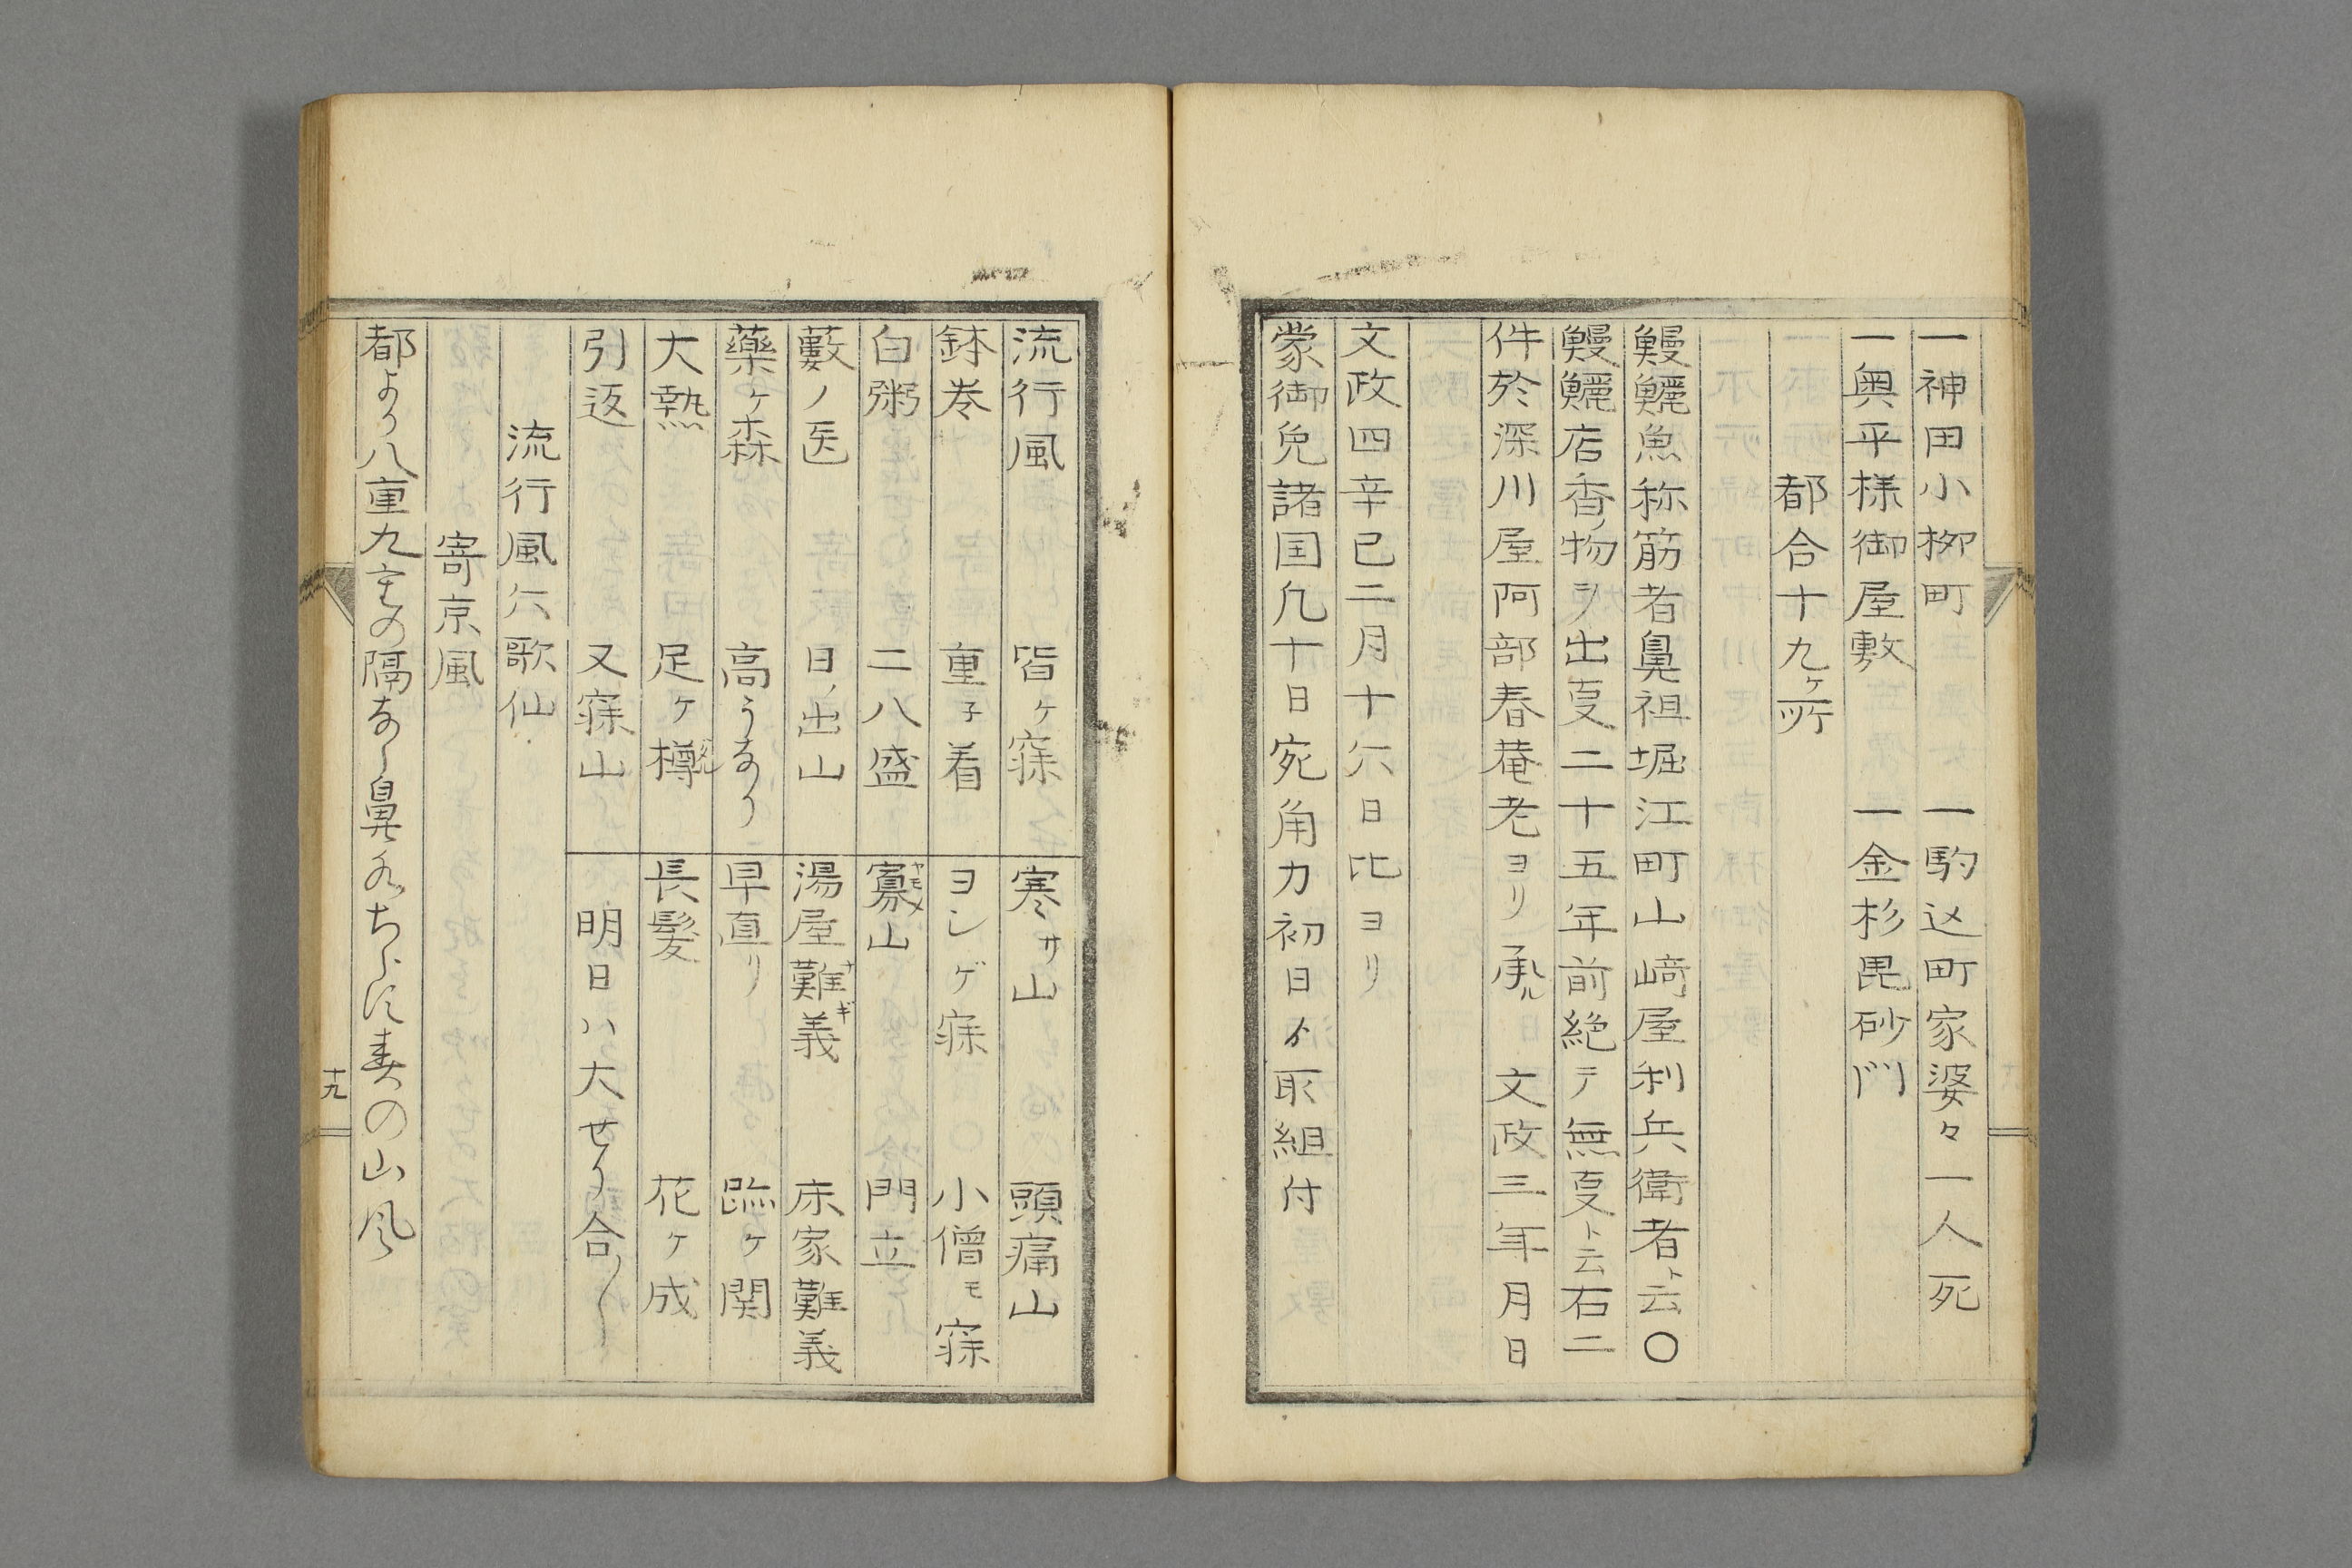 一神田小柳町　一駒込町家婆々一人死
一奥平様御屋敷　一金杉毘砂門
都合十九ヶ所
鰻鱺魚称筋者鼻祖堀江町山﨑屋利兵衛者ト云〇
鰻鱺店香ノ物ヲ出叓二十五年前絶テ無叓ト云右二
件於深川屋阿部春菴老ヨリ承ル　文政三年月日
文政四辛巳二月十六日比ヨリ
蒙御免諸国凢十日宛角力初日ゟ取組付
流行風　皆ヶ寐　寒サ山　頭痛山
鉢巻　重子着　ヨシゲ寐　小僧モ寐
白粥　二八盛　寡山　門立
藪ノ医　日ノ出山　湯屋難義　床家難義
藥ヶ森　高うなり　早直リ　跡ヶ関
大熱　足ヶ樽　長髪　花ヶ成
引返　又寐山　明日ハ大せり合〱
流行風六歌仙
寄京風
都より八重九重の隔なし鼻水ちらす春の山風
十九